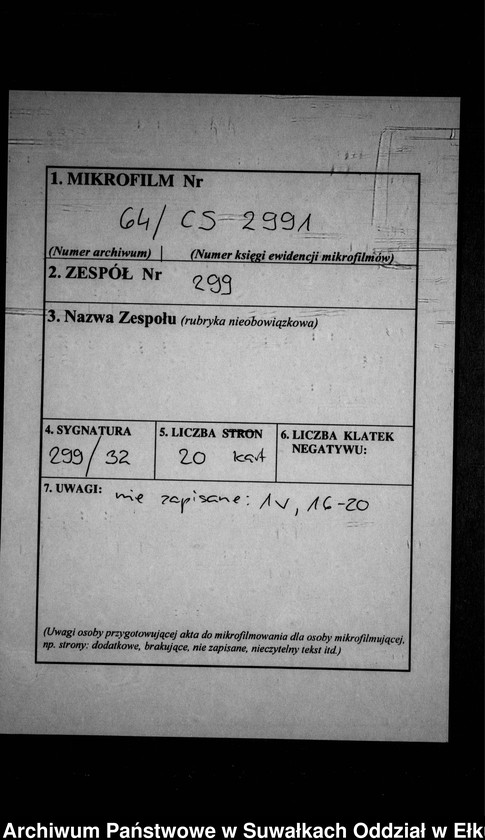 1. MIKROFILM Nr
64/ CS 2991
(Numer archiwum) | (Numer księgi ewidencji mikrofilmów)
2. ZESPÓŁ Nr 299
3. Nazwa Zespołu (rubryka nieobowiązkowa)
4. SYGNATURA
299/32
5. LICZBA STRON
20 kart
6. LICZBA KLATEK
NEGATYWU:
7. UWAGI: nie zapisane: 1v, 16-20
(Uwagi osoby przygotowującej akta do mikrofilmowania dla osoby mikrofilmującej,
np. strony: dodatkowe, brakujące, nie zapisane, nieczytelny tekst itd.)
Archiwum Państwowe w Suwałkach Oddział w Ełk